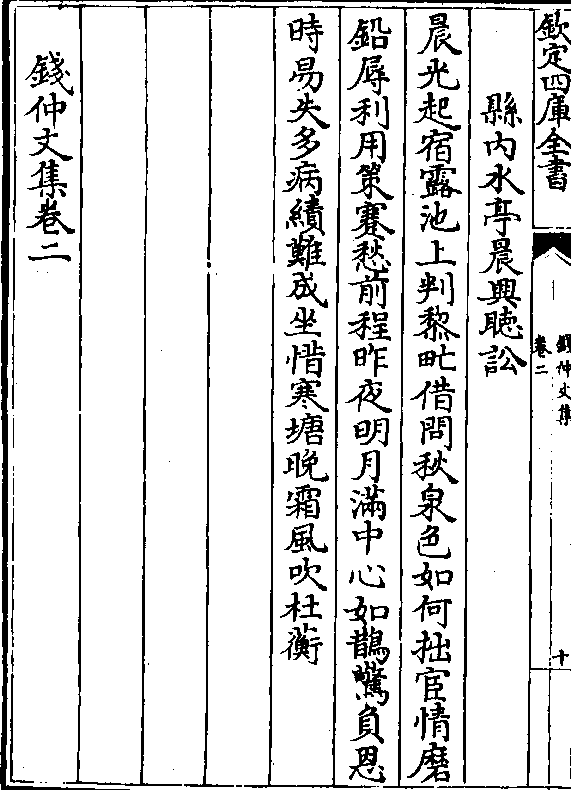 欽定四庫全書
錢仲文集
卷二
十
縣内水亭晨興聽訟
晨光起宿露池上判黎甿借問秋泉色如何拙宦情磨
鉛辱利用策蹇愁前程昨夜明月滿中心如鵲驚負恩
時易失多病績難成坐惜寒塘晚霜風吹杜蘅
錢仲文集卷二